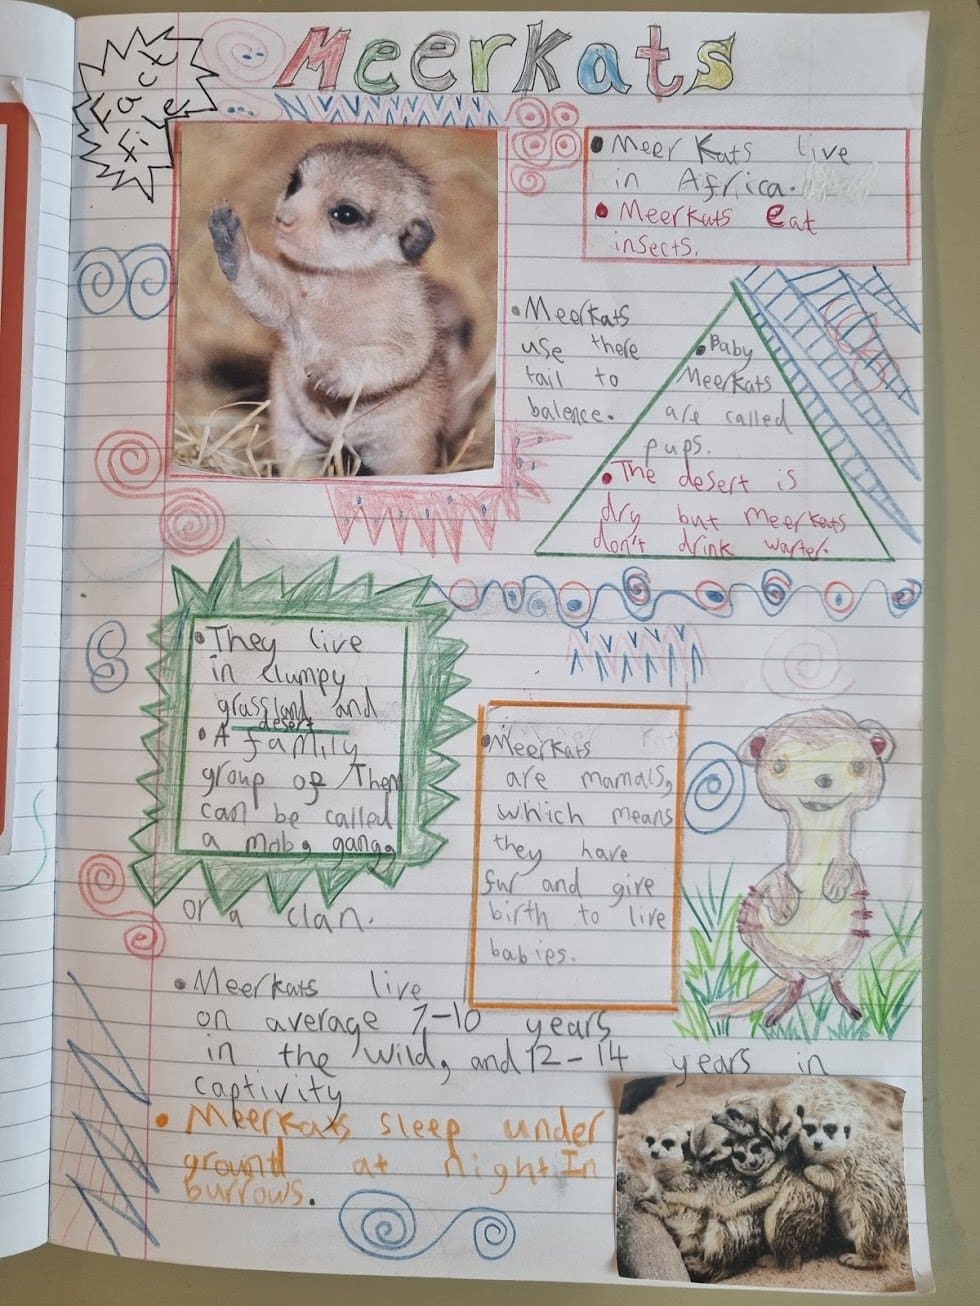 Fact
file
Meerkats
• Meer Kats live
in Africa.
• Meerkats eat
insects.
• Meerkats
use there
tail to
balence.
• Baby
Meerkats
are called
pups.
• The desert is
dry but meerkats
don't drink warter.
• They live
in clumpy
grassland and
desert
• A family
group of Them
can be called
a mob, gang,
or a clan.
• Meerkats
are mamals,
which means
they have
fur and give
birth to live
babies.
• Meerkats live
on average 7-10 years
in the wild, and 12-14 years in
captivity
• Meerkats sleep under
ground at night In
burrows.